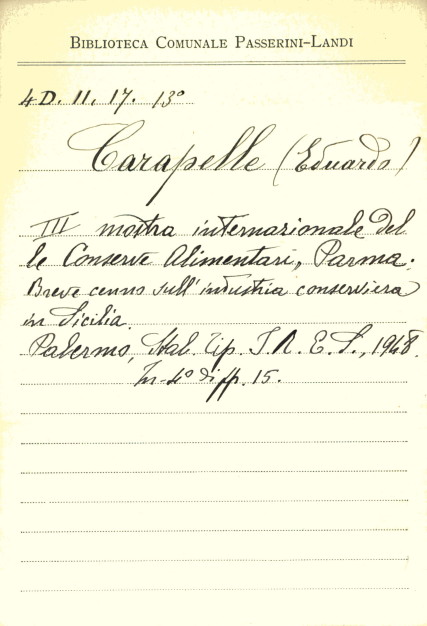 BIBLIOTECA COMUNALE PASSERINI-LANDI
4 D. II. 17. 13°
Carapelle (Eduardo)
III mostra internazionale del
le Conserve Alimentari, Parma.
Breve cenno sull'industria conserviera
in Sicilia.
Palermo, Stab. Tip. I. R. E. S., 1948.
In-4° di pp. 15.